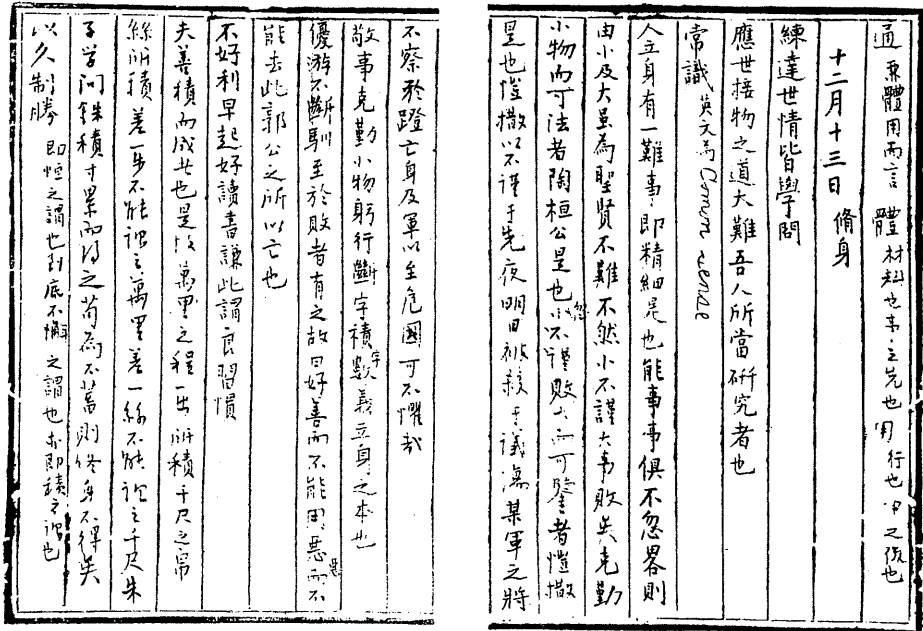 通 兼體用而言 體 材料也事之先也 用 行也事之後也
十二月十三日 脩身
練達世情皆學問
應世接物之道大難吾人所當研究者也
常識 英文為Common sense
人立身有一難事即精細是也能事事俱不忽畧則
由小及大虽為聖賢不難不然小不謹大事敗矣克勤
小物而可法者陶桓公是也忽小不謹敗大而可鑒者愷撒
是也愷撒以不謹于先夜明日被殺于議満某軍之將
不察於蹬亡身及軍以至危國可不懼哉
敬事 克勤小物 躬行 斷字積數義立身之本也
優游不斷馴至於敗者有之故曰好善而不能用惡惡而不
能去此郭公之所以亡也
不好利早起好讀書謙此謂良習慣
夫善積而成者也是故萬里之程一步所積千尺之帛
絲所積差一步不能謂之萬里差一絲不能謂之千尺朱
子学问銖積寸累而得之苟為不蓄則終身不得矣
以久制勝 即恒之謂也到底不懈之謂也亦即積之謂也